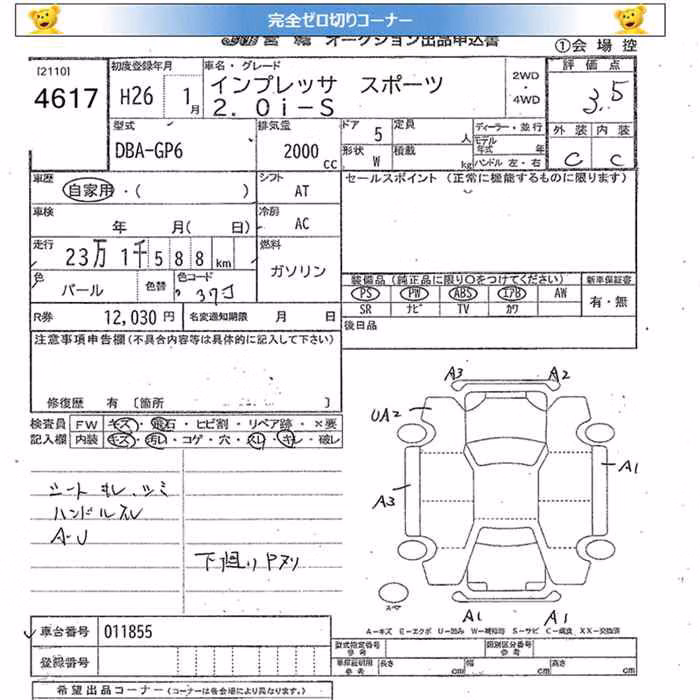 完全ゼロ切りコーナー
オークション出品申込書
①会場控
[2110]
4617
初度登録年月
H26 1月
車名・グレード
インプレッサ スポーツ
2.0i-S
2WD・4WD
評価点
3.5
型式
DBA-GP6
排気量
2000cc
ドア 5
定員 人
形状 W
積載 kg
ディーラー・並行
モデル年式 年
ハンドル 左・右
外装 内装
C C
車歴
自家用・( )
シフト
AT
セールスポイント (正常に機能するものに限ります)
車検
年 月( 日)
冷房
AC
走行
23万1千588km
燃料
ガソリン
色
パール
色替
色コード
37J
装備品(純正品に限り○をつけてください)
新車保証書
PS PW ABS エアB AW
SR ナビ TV カワ
有・無
R券 12,030円
名変通知期限 月 日
後日品
注意事項申告欄(不具合内容等は具体的に記入して下さい)
修復歴 有〔箇所
検査員記入欄
FW キズ・飛石・ヒビ割・リペア跡・×要
内装 キズ・汚れ・コゲ・穴・スレ・キレ・破レ
シート キレ、シミ
ハンドルスレ
A・U
下廻りPヌリ
A3 A2
UA2
A1
A3
A1 A1
スペア
A-キズ E-エクボ U-凹み W-補修跡 S-サビ C-腐食 XX-交換済
車台番号 011855
登録番号
型式指定番号参考
類別区分番号参考
車庫証明用参考
長さ cm 幅 cm 高さ cm
希望出品コーナー(コーナーは各会場により異なります。)